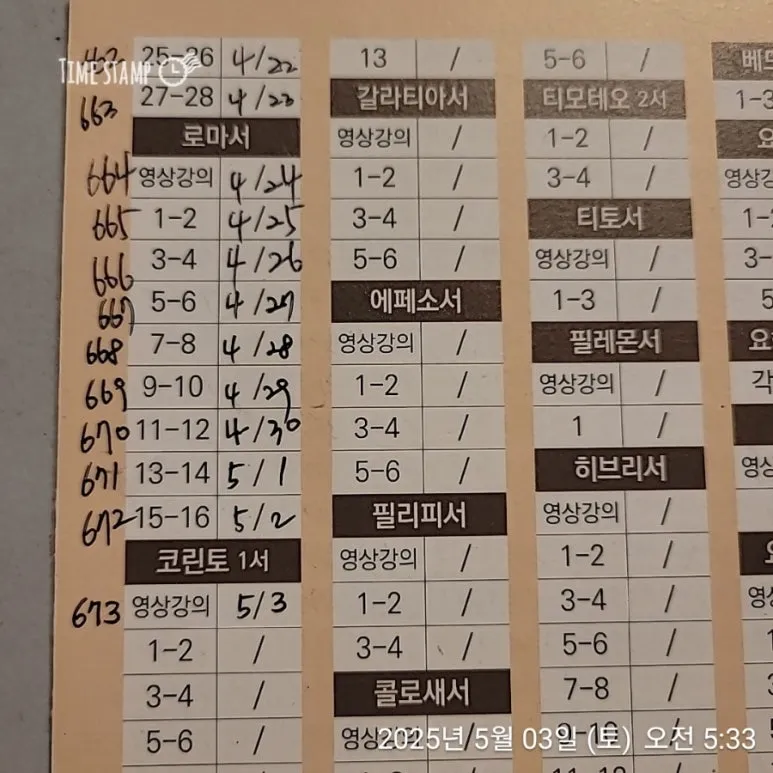 TIME STAMP
25-26 4/22
663 27-28 4/23
로마서
664 영상강의 4/24
665 1-2 4/25
666 3-4 4/26
667 5-6 4/27
668 7-8 4/28
669 9-10 4/29
670 11-12 4/30
671 13-14 5/1
672 15-16 5/2
코린토 1서
673 영상강의 5/3
1-2 /
3-4 /
5-6 /
13 /
갈라티아서
영상강의 /
1-2 /
3-4 /
5-6 /
에페소서
영상강의 /
1-2 /
3-4 /
5-6 /
필리피서
영상강의 /
1-2 /
3-4 /
콜로새서
영상강의 /
5-6 /
티모테오 2서
1-2 /
3-4 /
티토서
영상강의 /
1-3 /
필레몬서
영상강의 /
1 /
히브리서
영상강의 /
1-2 /
3-4 /
5-6 /
7-8 /
9-10 /
2025년 5월 03일 (토) 오전 5:33